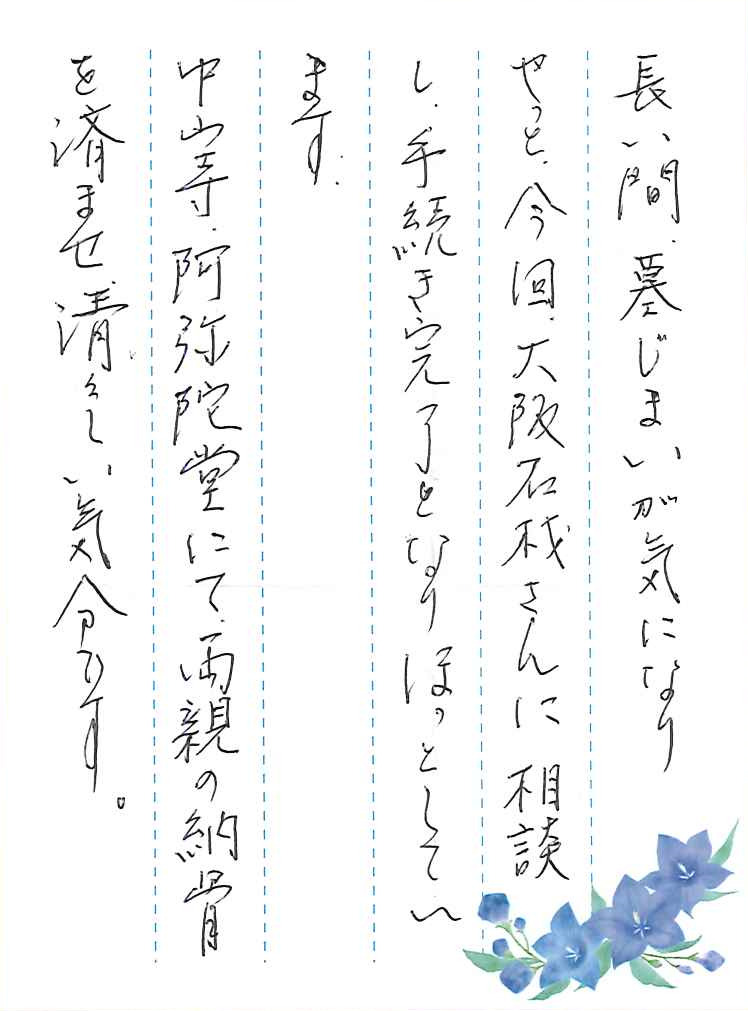 長い間、墓じまいが気になり
やっと、今回、大阪石材さんに相談
し、手続き完了となりほっとしてい
ます。
中山寺、阿弥陀堂にて、両親の納骨
を済ませ、清々しい気分です。